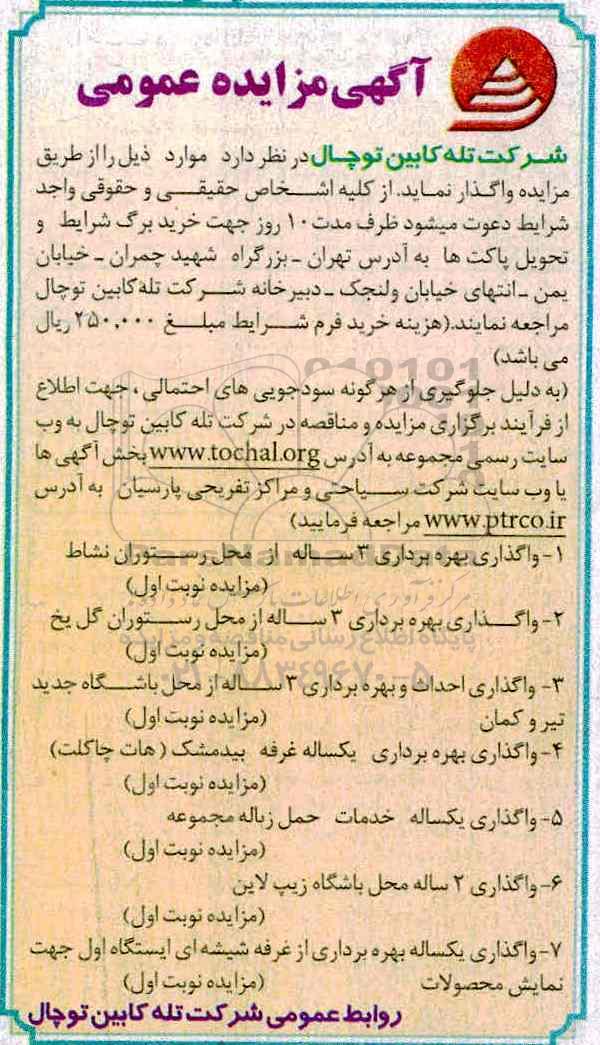 آگهی مزایده عمومی
شرکت تله کابین توچال در نظر دارد موارد ذیل را از طریق
مزایده واگذار نماید. از کلیه اشخاص حقیقی و حقوقی واجد
شرایط دعوت میشود ظرف مدت ۱۰ روز جهت خرید برگ شرایط و
تحویل پاکت ها به آدرس تهران - بزرگراه شهید چمران - خیابان
یمن - انتهای خیابان ولنجک - دبیرخانه شرکت تله کابین توچال
مراجعه نمایند.(هزینه خرید فرم شرایط مبلغ ۲۵۰,۰۰۰ ریال
می باشد)
(به دلیل جلوگیری از هرگونه سودجویی های احتمالی، جهت اطلاع
از فرآیند برگزاری مزایده و مناقصه در شرکت تله کابین توچال به وب
سایت رسمی مجموعه به آدرس www.tochal.org بخش آگهی ها
یا وب سایت شرکت سیاحتی و مراکز تفریحی پارسیان به آدرس
www.ptrco.ir مراجعه فرمایید)
۱- واگذاری بهره برداری ۳ ساله از محل رستوران نشاط
(مزایده نوبت اول)
۲- واگذاری بهره برداری ۳ ساله از محل رستوران گل یخ
(مزایده نوبت اول)
۳- واگذاری احداث و بهره برداری ۳ ساله از محل باشگاه جدید
تیر و کمان (مزایده نوبت اول)
۴- واگذاری بهره برداری یکساله غرفه بیدمشک (هات چاکلت)
(مزایده نوبت اول)
۵- واگذاری یکساله خدمات حمل زباله مجموعه
(مزایده نوبت اول)
۶- واگذاری ۲ ساله محل باشگاه زیپ لاین
(مزایده نوبت اول)
۷- واگذاری یکساله بهره برداری از غرفه شیشه ای ایستگاه اول جهت
نمایش محصولات (مزایده نوبت اول)
روابط عمومی شرکت تله کابین توچال
پایگاه اطلاع رسانی مناقصه و مزایده
۰۲۱-۸۸۳۴۹۶۷۰-۵